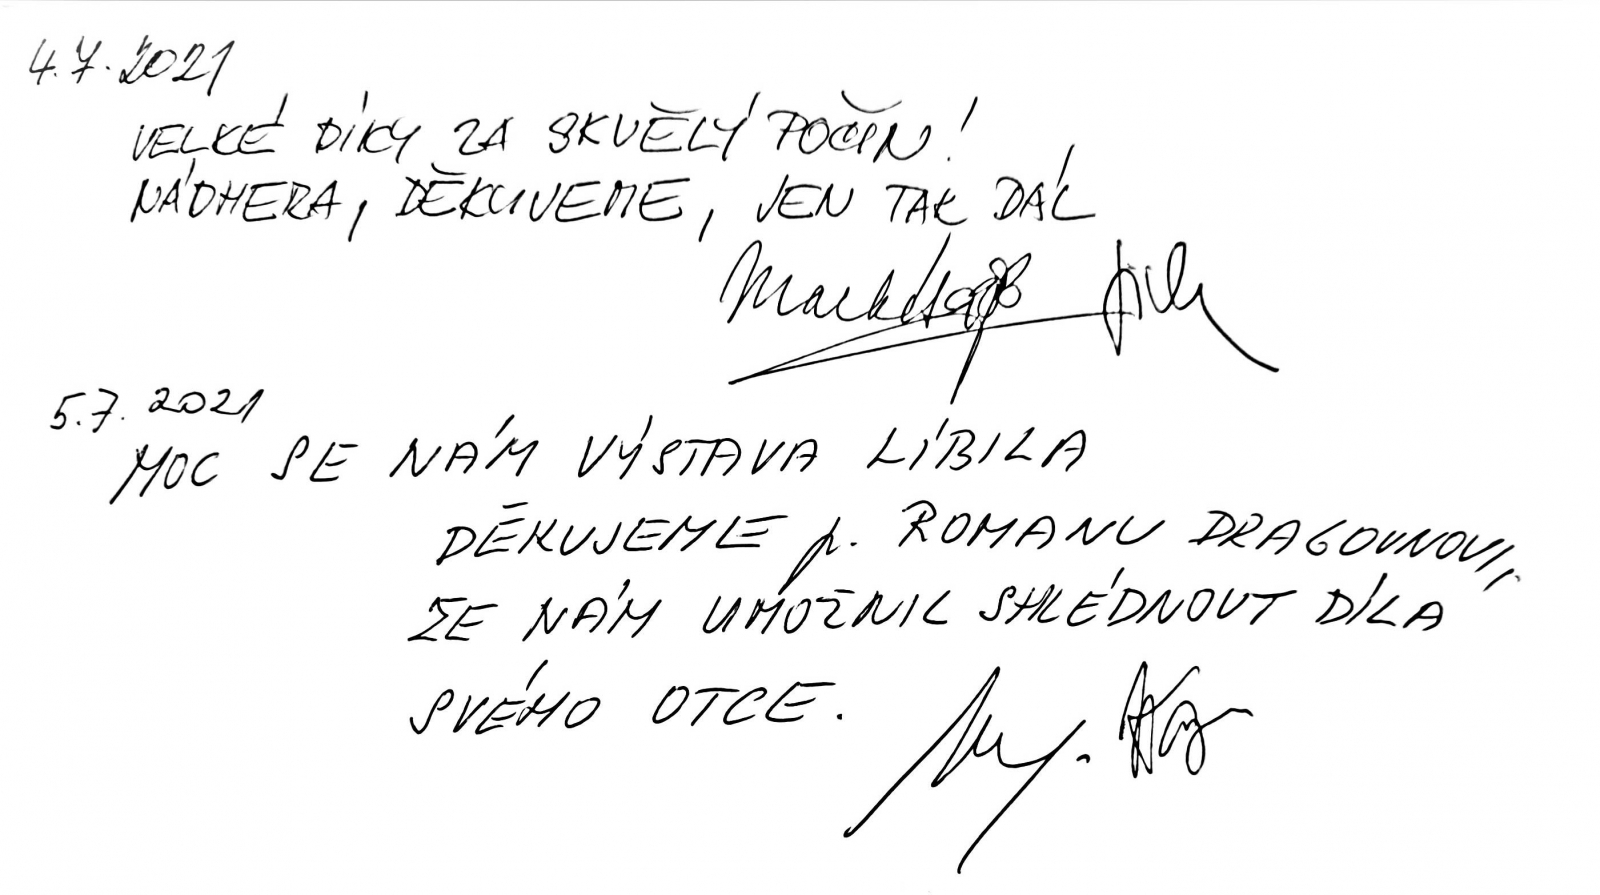 4.7.2021
VELKÉ DÍKY ZA SKVĚLÝ POČIN!
NÁDHERA, DĚKUJEME, JEN TAK DÁL
5.7.2021
MOC SE NÁM VÝSTAVA LÍBILA
DĚKUJEME p. ROMANU DRAGOUNOVI,
ŽE NÁM UMOŽNIL SHLÉDNOUT DÍLA
SVÉHO OTCE.